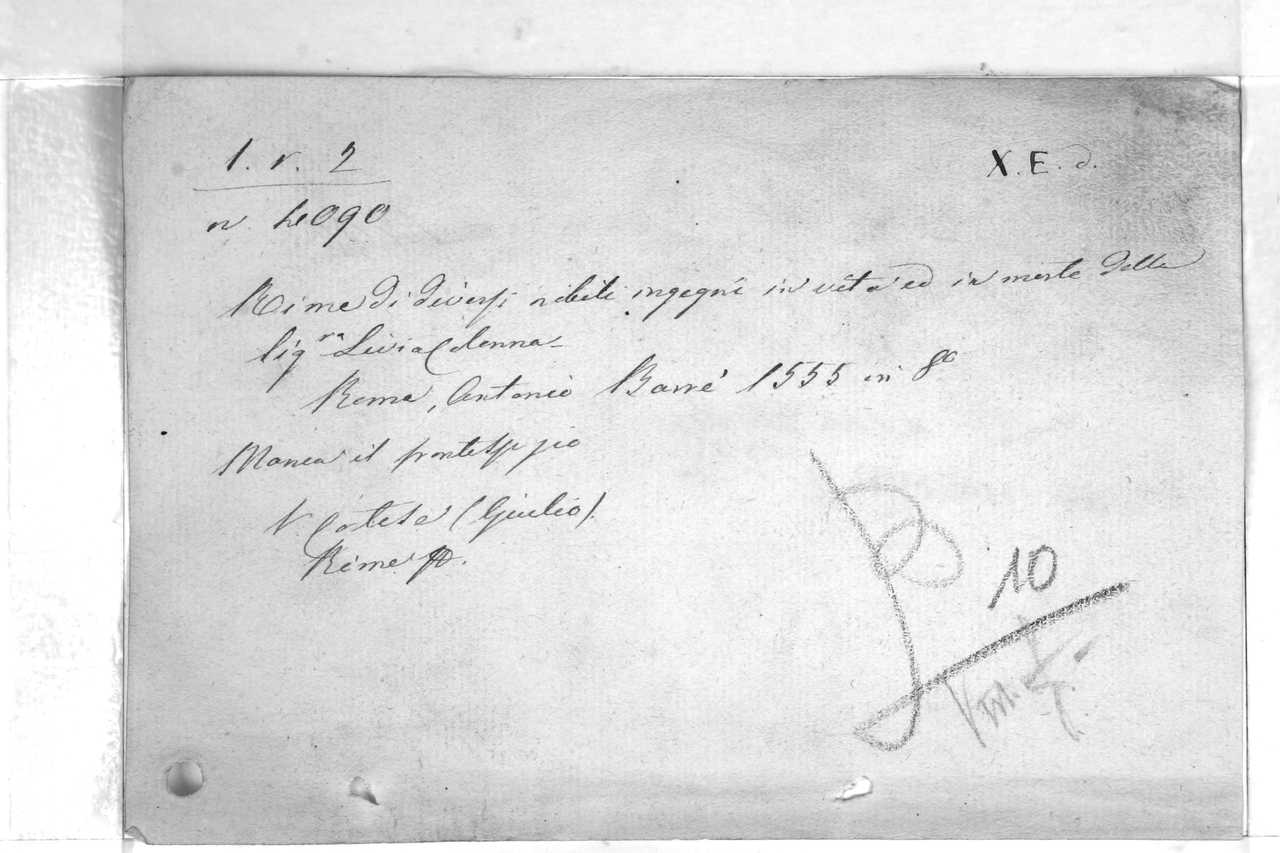 1. r. 2
X. E. d.
n 4090
Rime di diversi nobili ingegni in vita ed in morte della
Sig.ra Livia Colonna
Roma, Antonio Barrè 1555 in 8o
Manca il frontespizio
V. (Giulio).
Rime
10